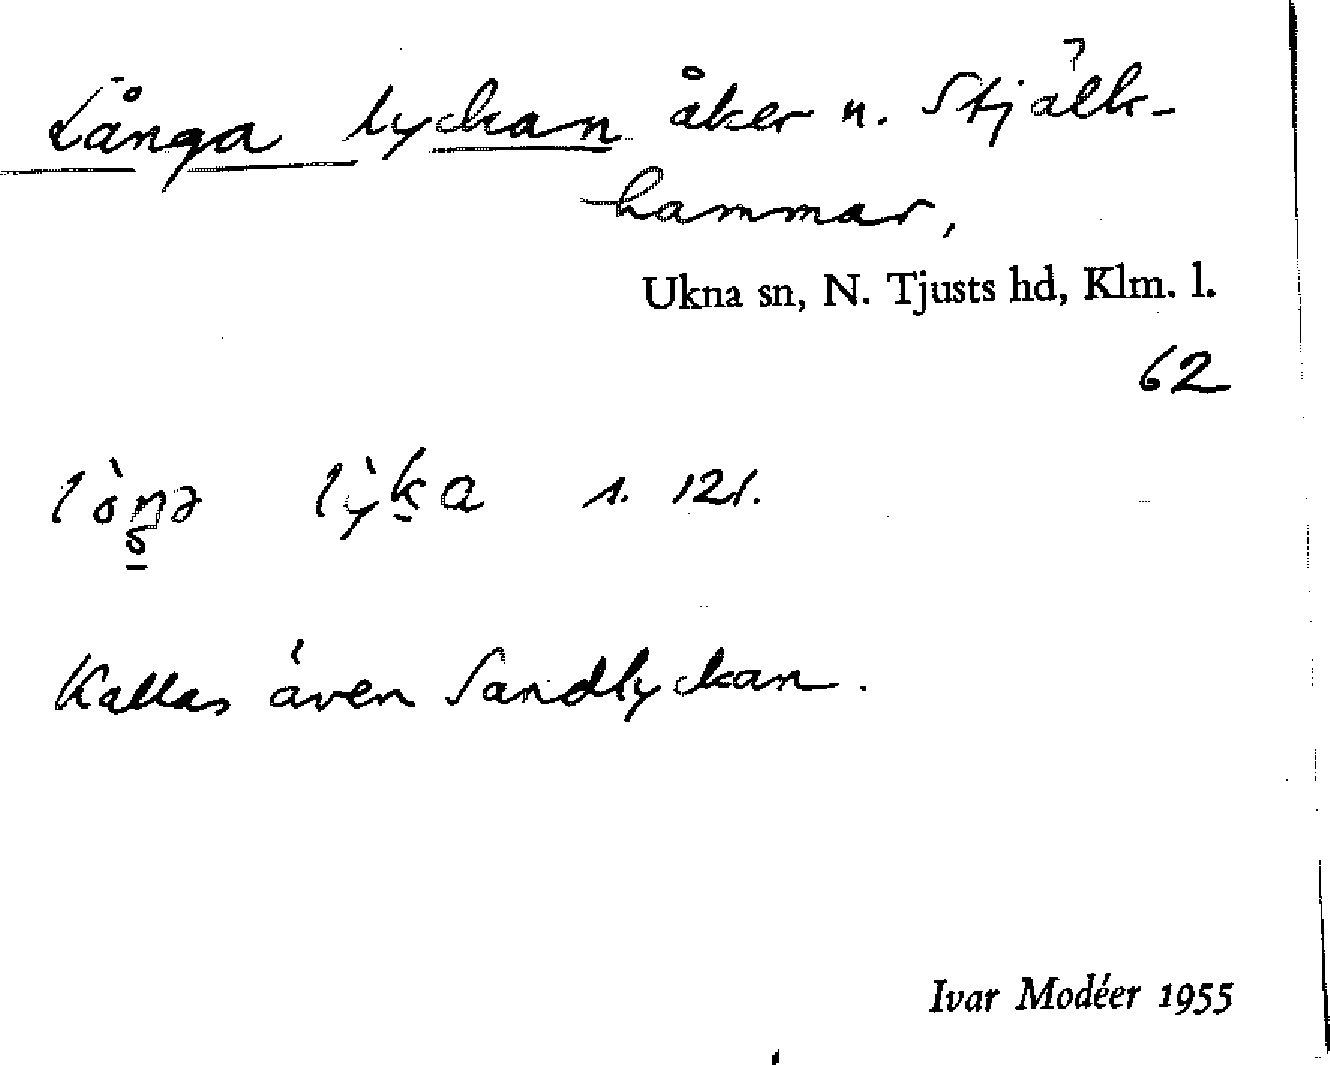 Långa lyckan åker n. Stjälk-
hammar,
Ukna sn, N. Tjusts hd, Klm. l.
62
Kallas även Sandlyckan.
Ivar Modéer 1955